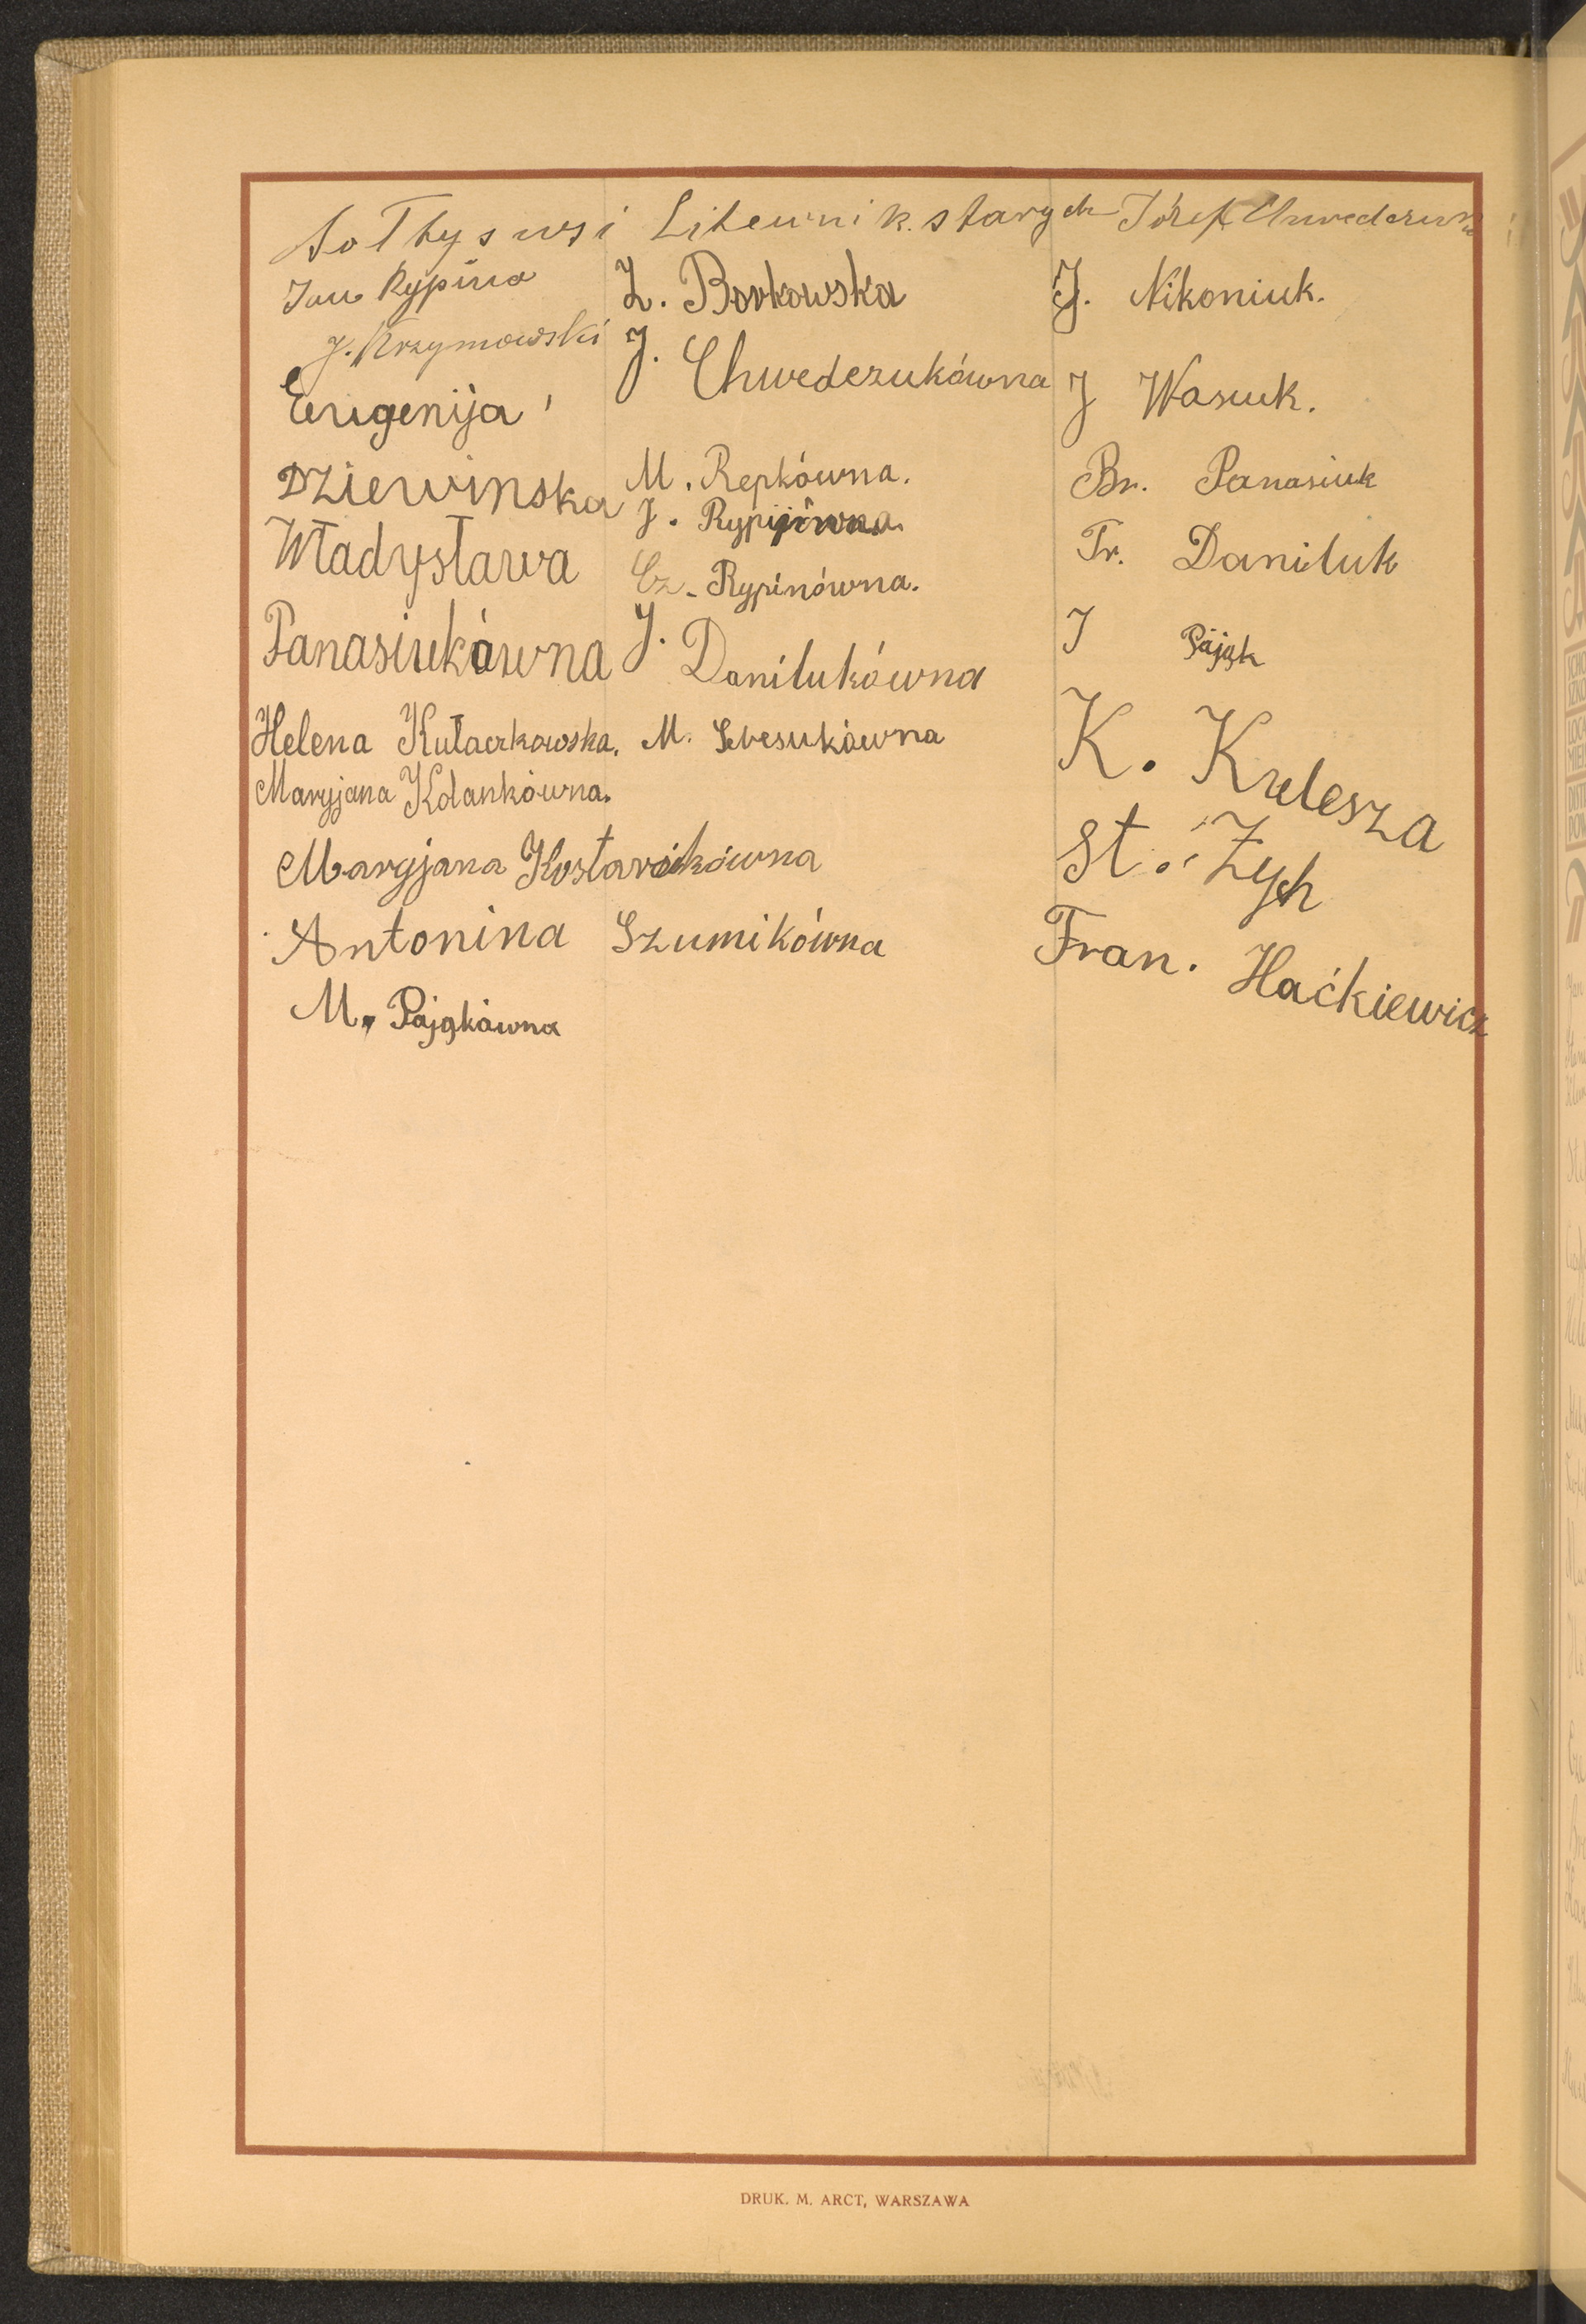 Sołtys wsi Litewnik starych Józef Chwedczuk
Jan Rypina
J. Krzymowski
Eugenija
Dziewinska
Władysława
Panasiukówna
Helena Kułaczkowska.
Maryjana Kolankówna.
Maryjana Kostarcikówna
Antonina Szumikówna
M. Pająkówna
Z. Borkowska
J. Chwedczukówna
M. Repkówna.
J. Rypinówna.
Cz. Rypinówna.
J. Danilukówna
M. Selvesukówna
J. Nikoniuk.
J Wasiuk.
Br. Panasiuk
Fr. Daniluk
J Pająk
K. Krelesza
St. Zych
Fran. Haćkiewicz
DRUK. M. ARCT, WARSZAWA